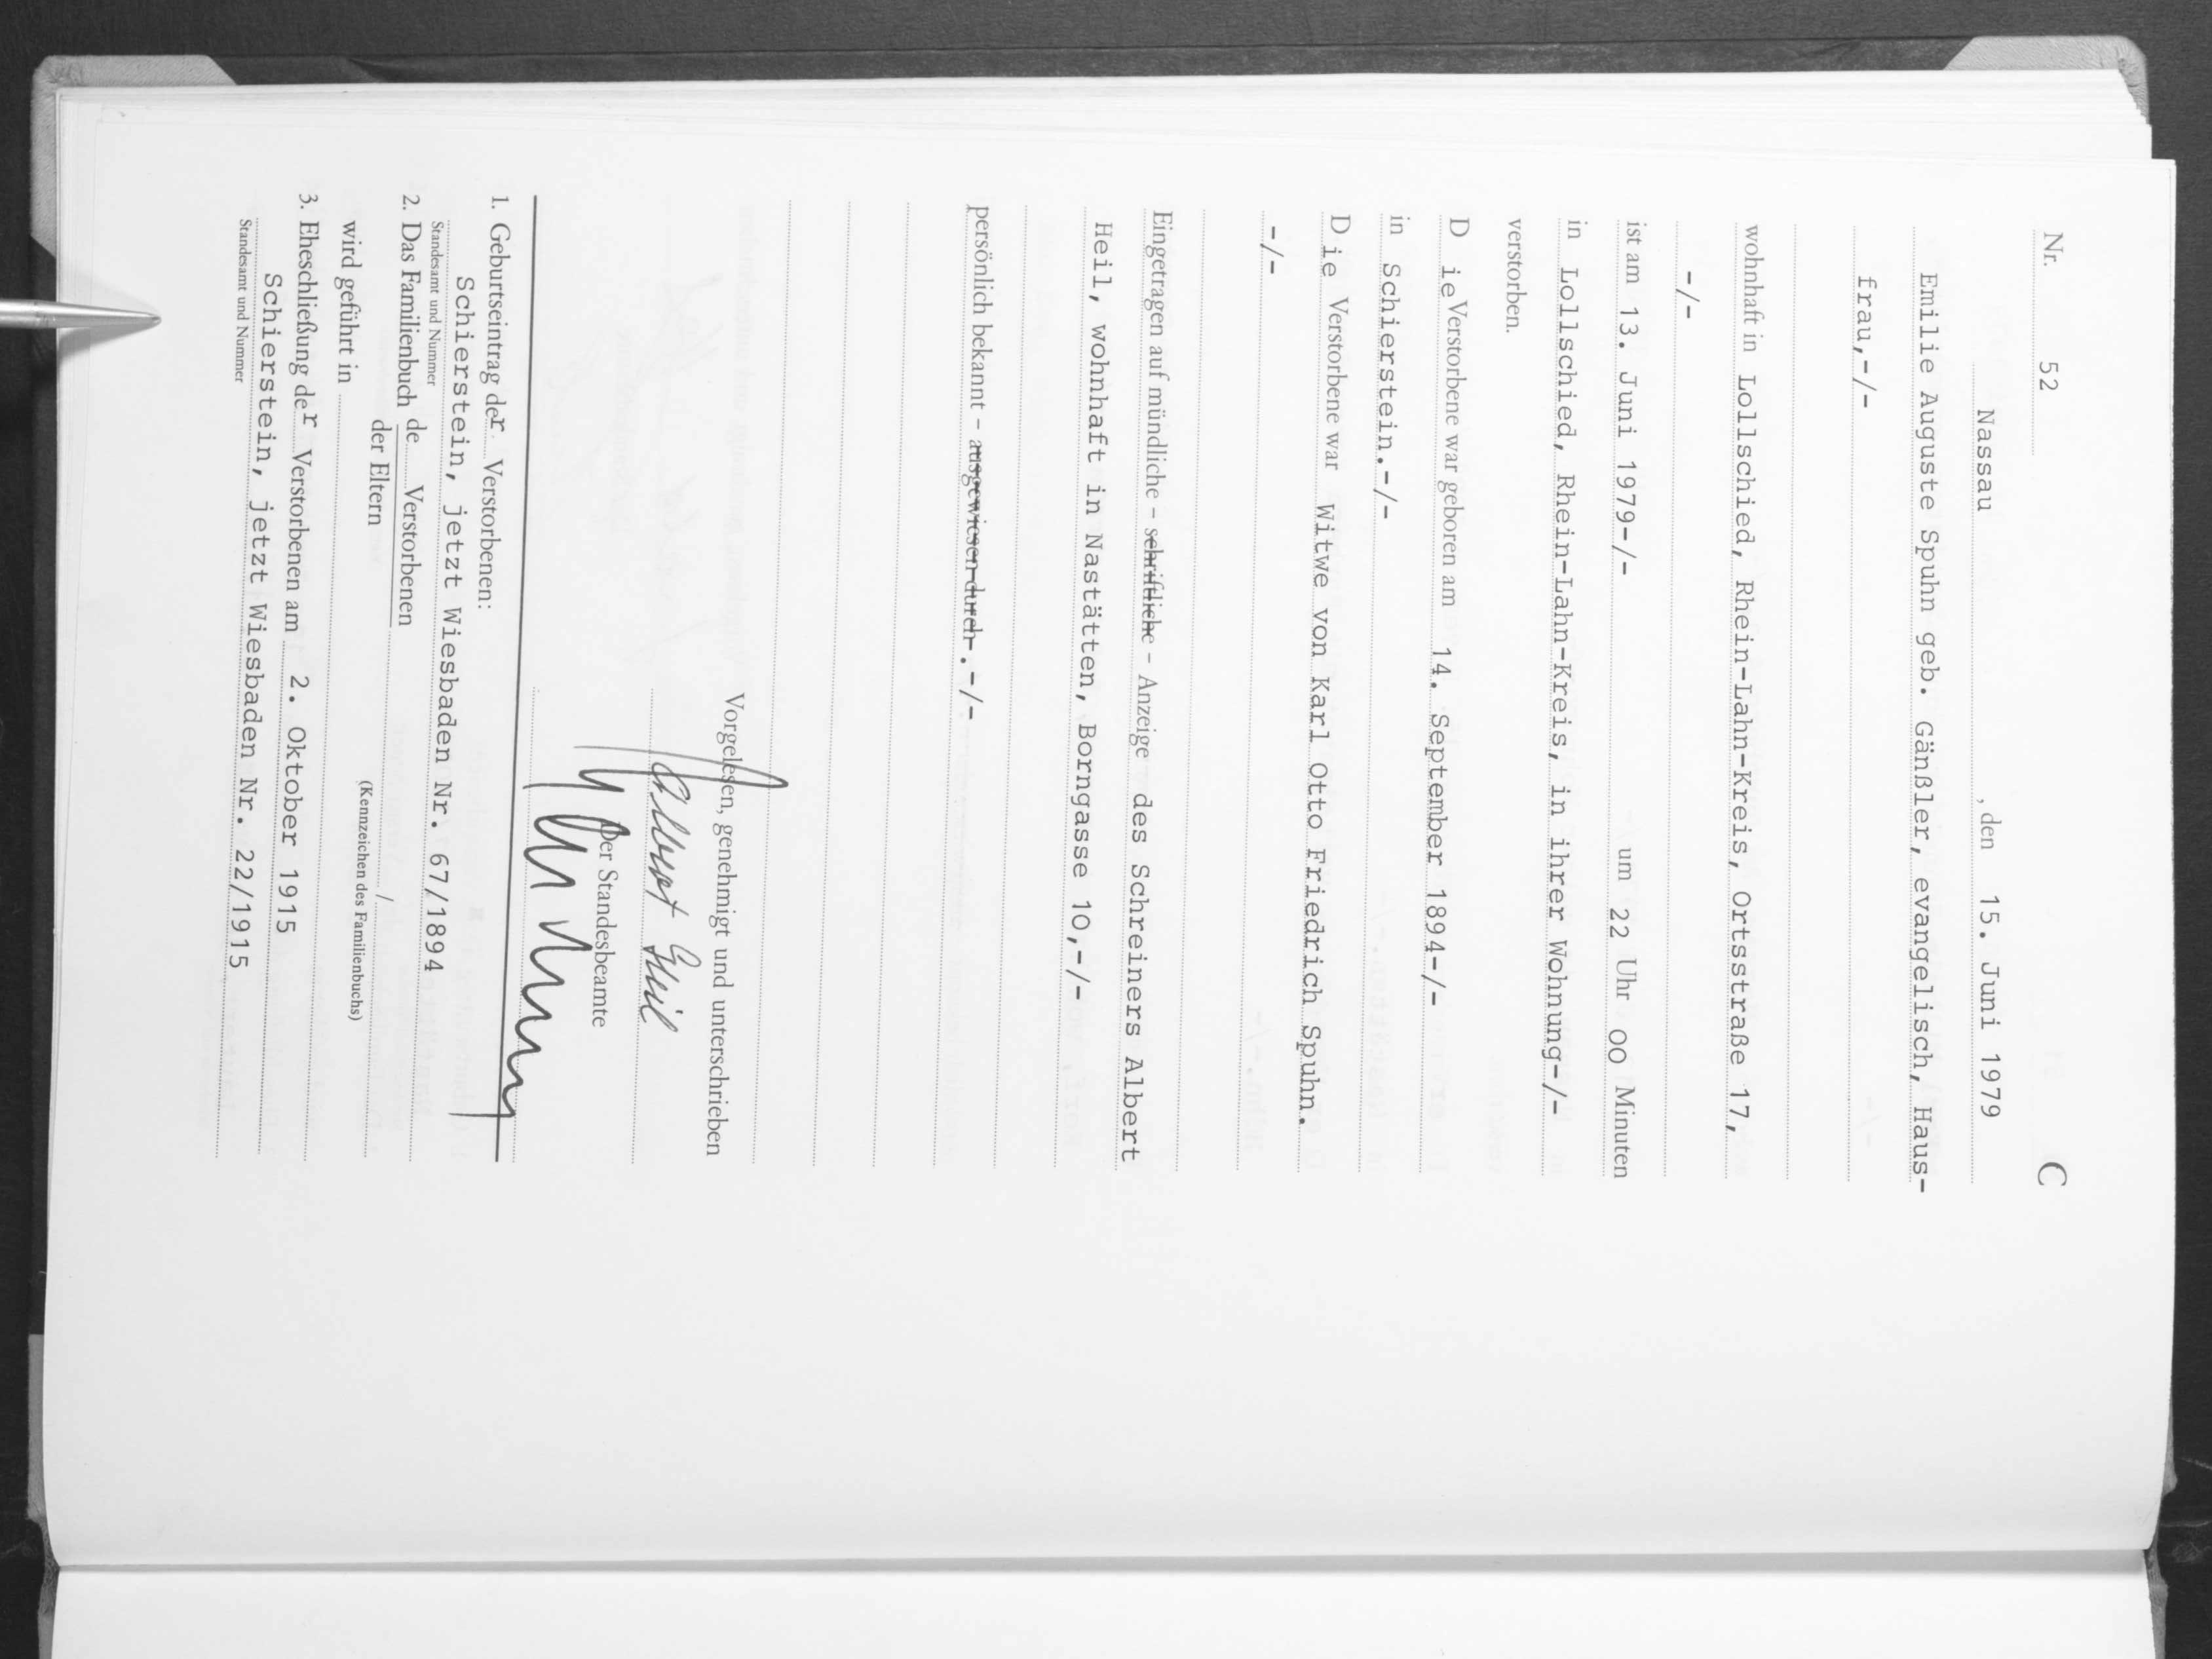 Nr. 52 C
Nassau , den 15. Juni 1979
Emilie Auguste Spuhn geb. Gänßler, evangelisch, Haus-
frau,-/-
wohnhaft in Lollschied, Rhein-Lahn-Kreis, Ortsstraße 17,
-/-
ist am 13. Juni 1979-/- um 22 Uhr oo Minuten
in Lollschied, Rhein-Lahn-Kreis, in ihrer Wohnung-/-
verstorben.
D ie Verstorbene war geboren am 14. September 1894-/-
in Schierstein.-/-
D ie Verstorbene war Witwe von Karl Otto Friedrich Spuhn.
-/-
Eingetragen auf mündliche - schriftliche - Anzeige des Schreiners Albert
Heil, wohnhaft in Nastätten, Borngasse 10,-/-
persönlich bekannt - ausgewiesen durch-.-/-
Vorgelesen, genehmigt und unterschrieben
Albert Heil
Der Standesbeamte
1. Geburtseintrag der Verstorbenen:
Schierstein, jetzt Wiesbaden Nr. 67/1894
Standesamt und Nummer
2. Das Familienbuch de Verstorbenen
der Eltern
wird geführt in /
(Kennzeichen des Familienbuchs)
3. Eheschließung der Verstorbenen am 2. Oktober 1915
Schierstein, jetzt Wiesbaden Nr. 22/1915
Standesamt und Nummer